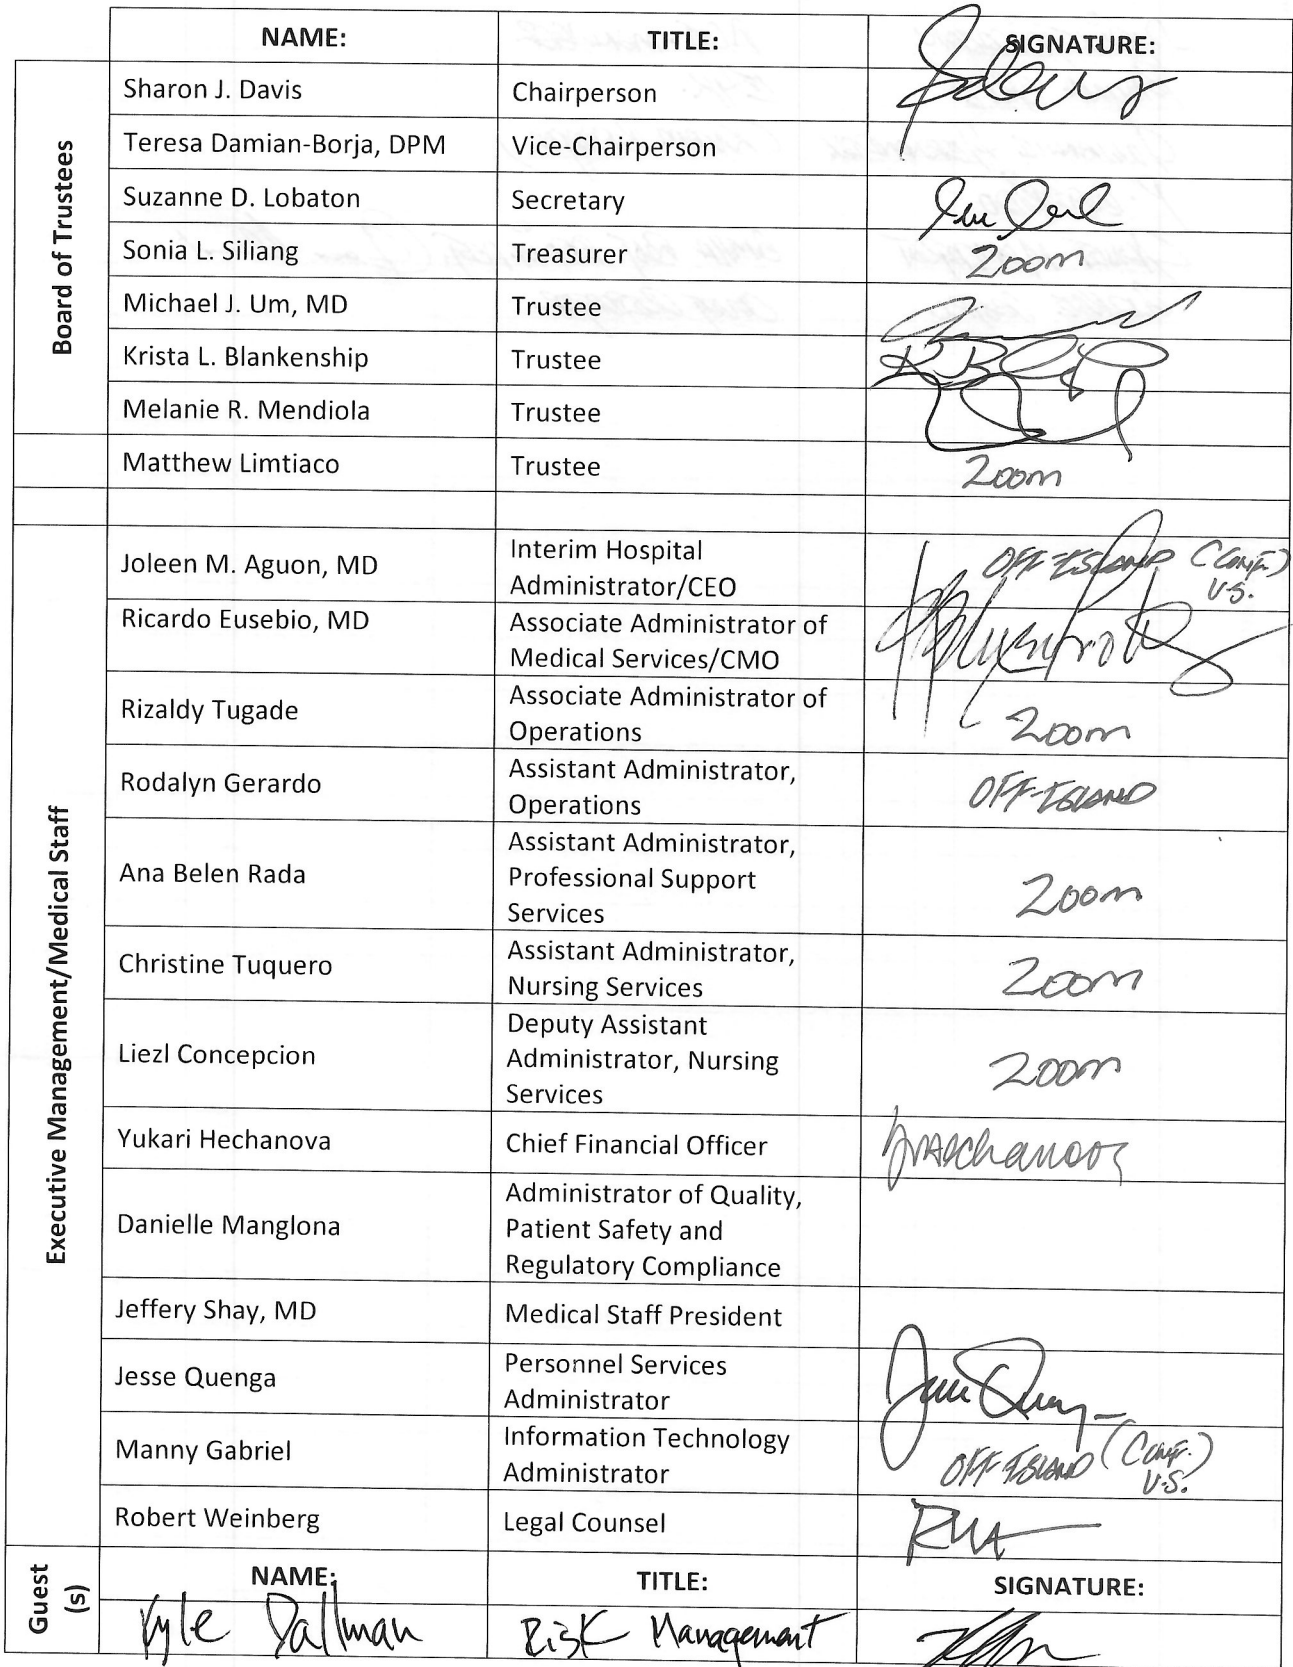 NAME: TITLE: SIGNATURE:
Board of Trustees
Sharon J. Davis Chairperson
Teresa Damian-Borja, DPM Vice-Chairperson
Suzanne D. Lobaton Secretary
Sonia L. Siliang Treasurer Zoom
Michael J. Um, MD Trustee
Krista L. Blankenship Trustee
Melanie R. Mendiola Trustee
Matthew Limtiaco Trustee Zoom
Executive Management/Medical Staff
Joleen M. Aguon, MD Interim Hospital OFF-ISLAND (CONF.)
Administrator/CEO U.S.
Ricardo Eusebio, MD Associate Administrator of
Medical Services/CMO
Rizaldy Tugade Associate Administrator of
Operations Zoom
Rodalyn Gerardo Assistant Administrator, OFF-ISLAND
Operations
Assistant Administrator,
Ana Belen Rada Professional Support Zoom
Services
Christine Tuquero Assistant Administrator, Zoom
Nursing Services
Deputy Assistant
Liezl Concepcion Administrator, Nursing Zoom
Services
Yukari Hechanova Chief Financial Officer
Administrator of Quality,
Danielle Manglona Patient Safety and
Regulatory Compliance
Jeffery Shay, MD Medical Staff President
Jesse Quenga Personnel Services
Administrator
Manny Gabriel Information Technology OFF-ISLAND (CONF.)
Administrator U.S.
Robert Weinberg Legal Counsel
Guest
(s)
NAME: TITLE: SIGNATURE:
Kyle Dallman Risk Management